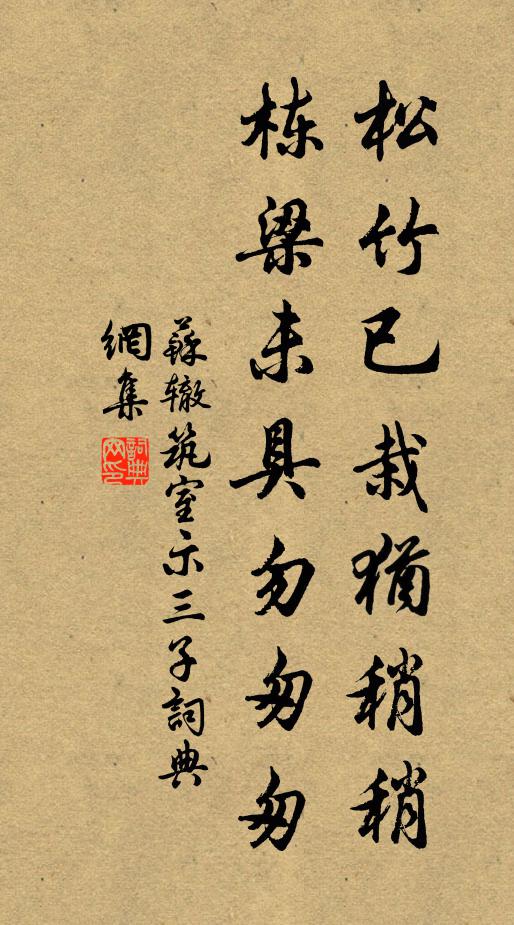 松竹已栽犹稍稍
栋梁未具勿匆匆
蘇辙筑室示三子詞典
網集
詞典网印